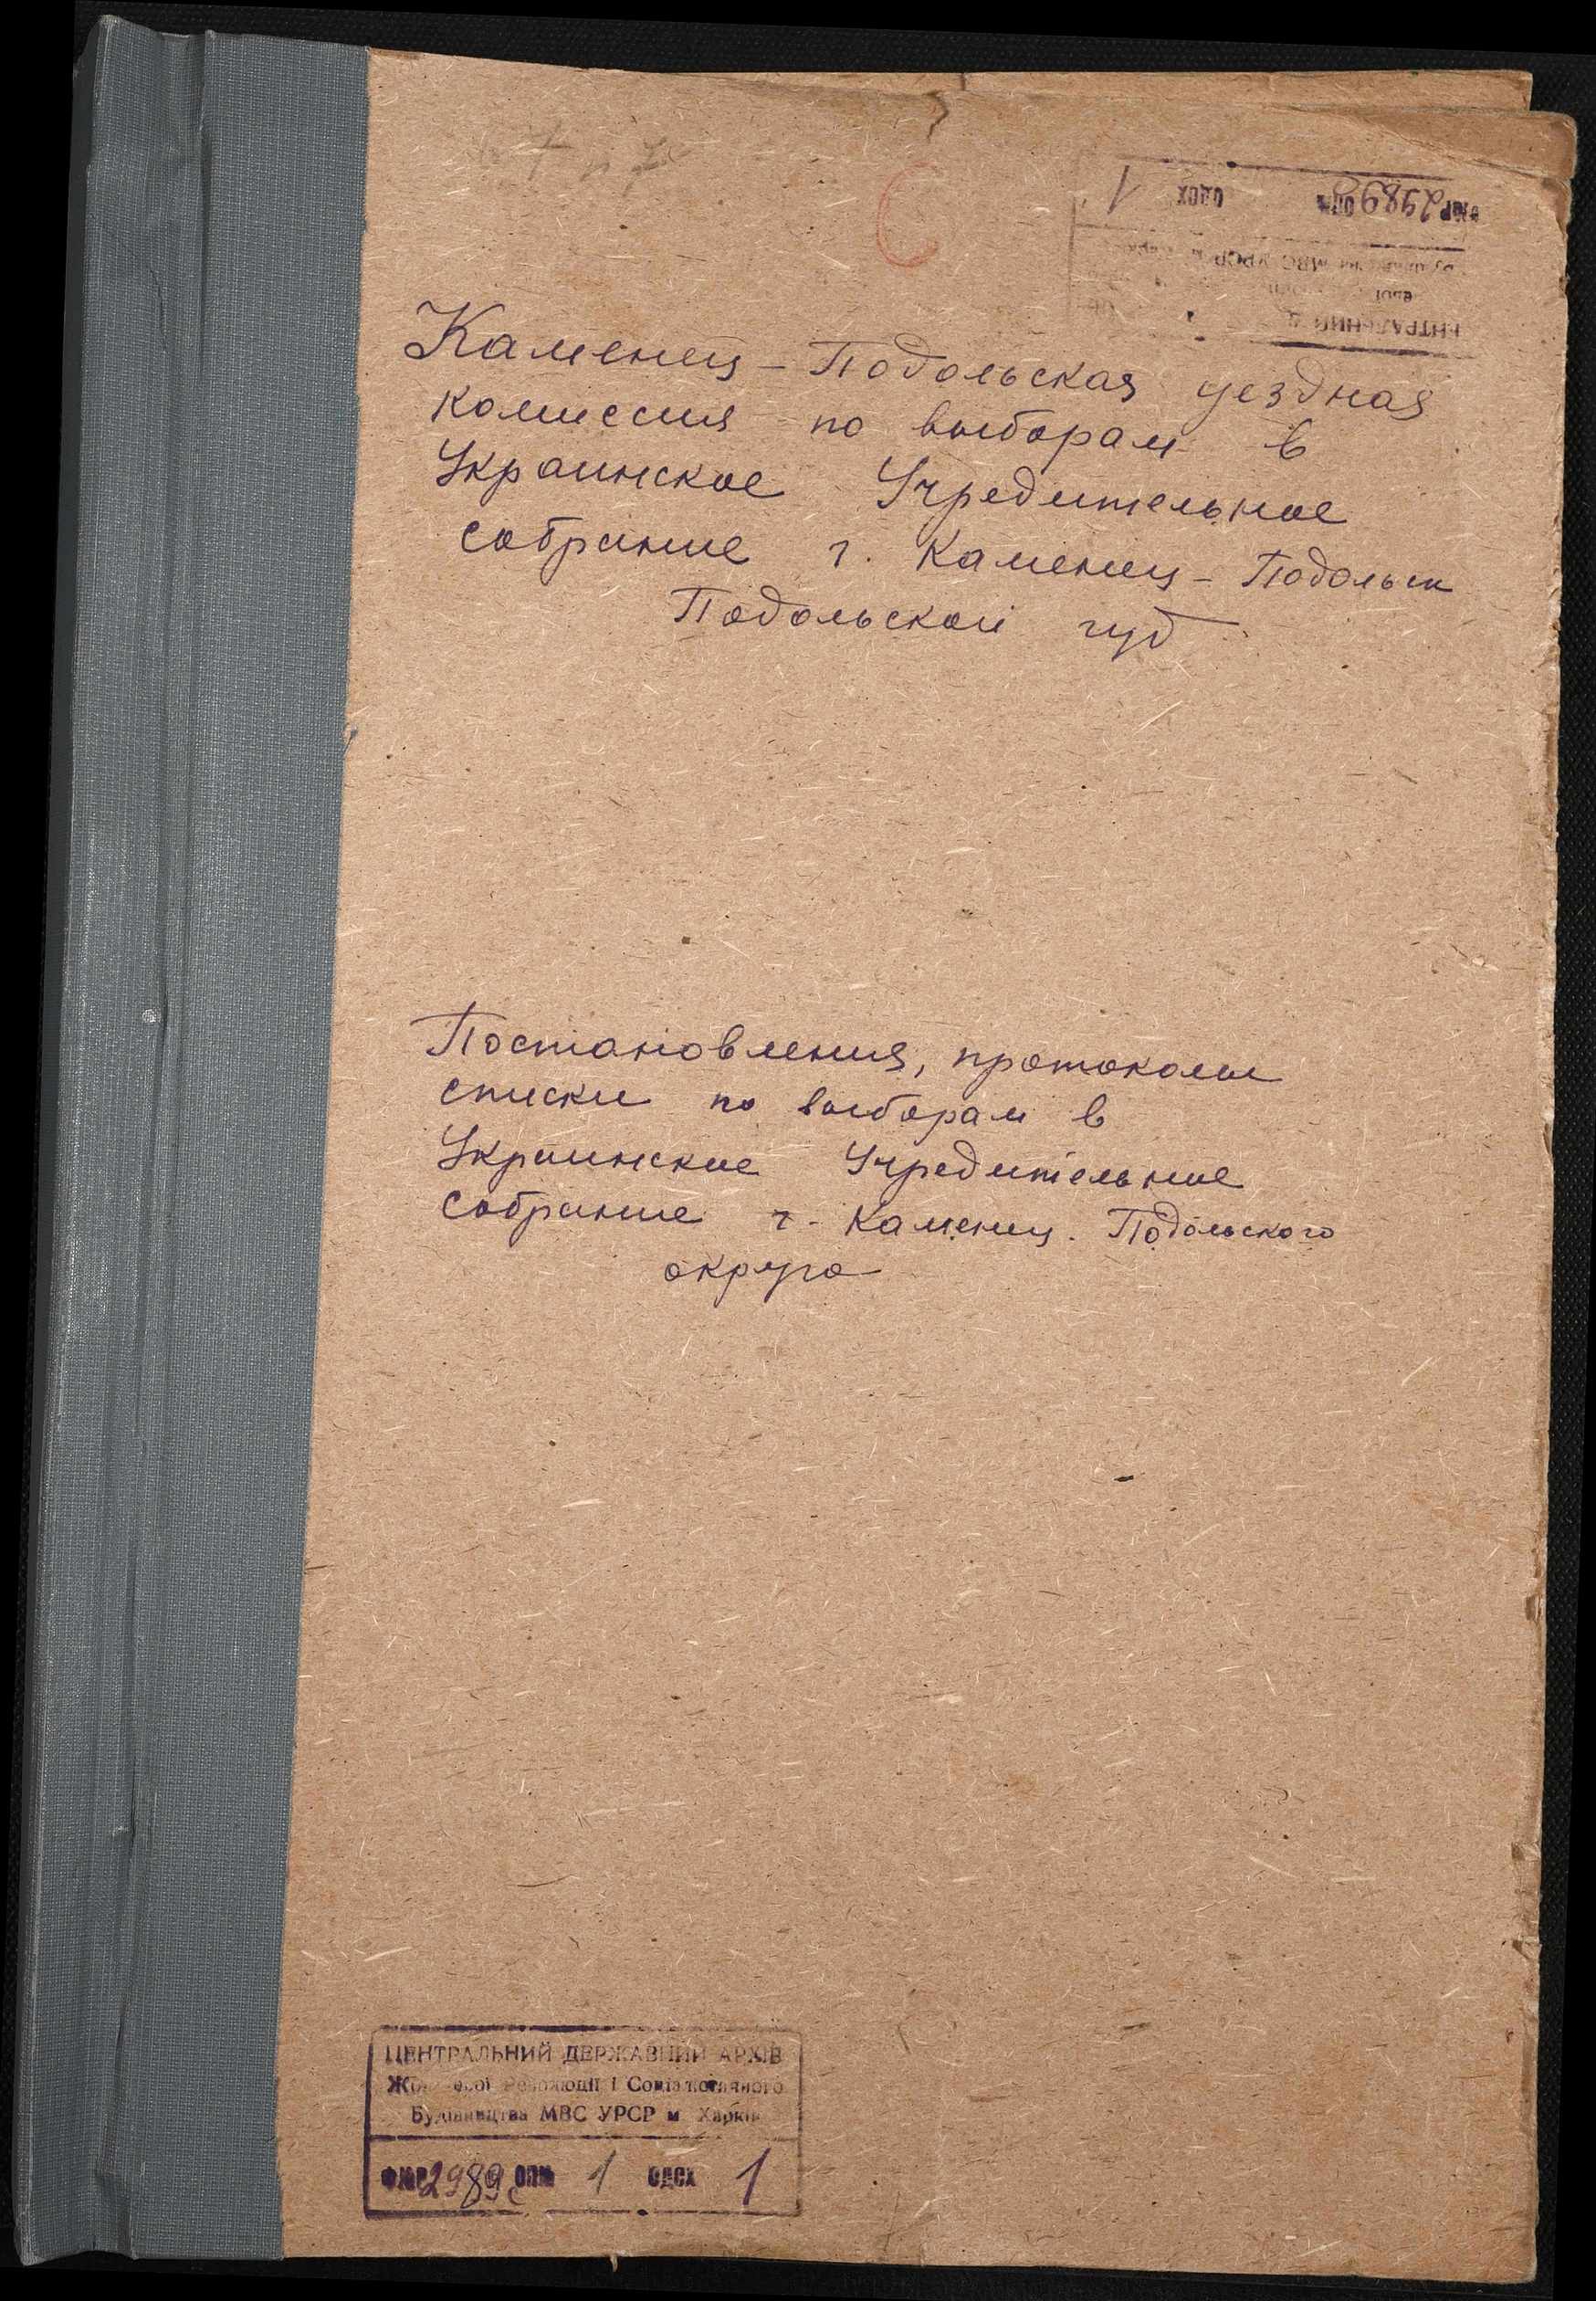 2989 1
Каменец-Подольская уездная
комиссия по выборам в
Украинское Учредительное
собрание г. Каменец-Подольск
Подольской губ
Постановления, протоколы
списки по выборам в
Украинское Учредительное
собрание г. Каменец. Подольского
округа
ЦЕНТРАЛЬНИЙ ДЕРЖАВНИЙ АРХІВ
Жовтневої Революції і Соціалістичного
Будівництва МВС УРСР м Харків
ФУР 2989с ОПИ 1 ОДСХ 1